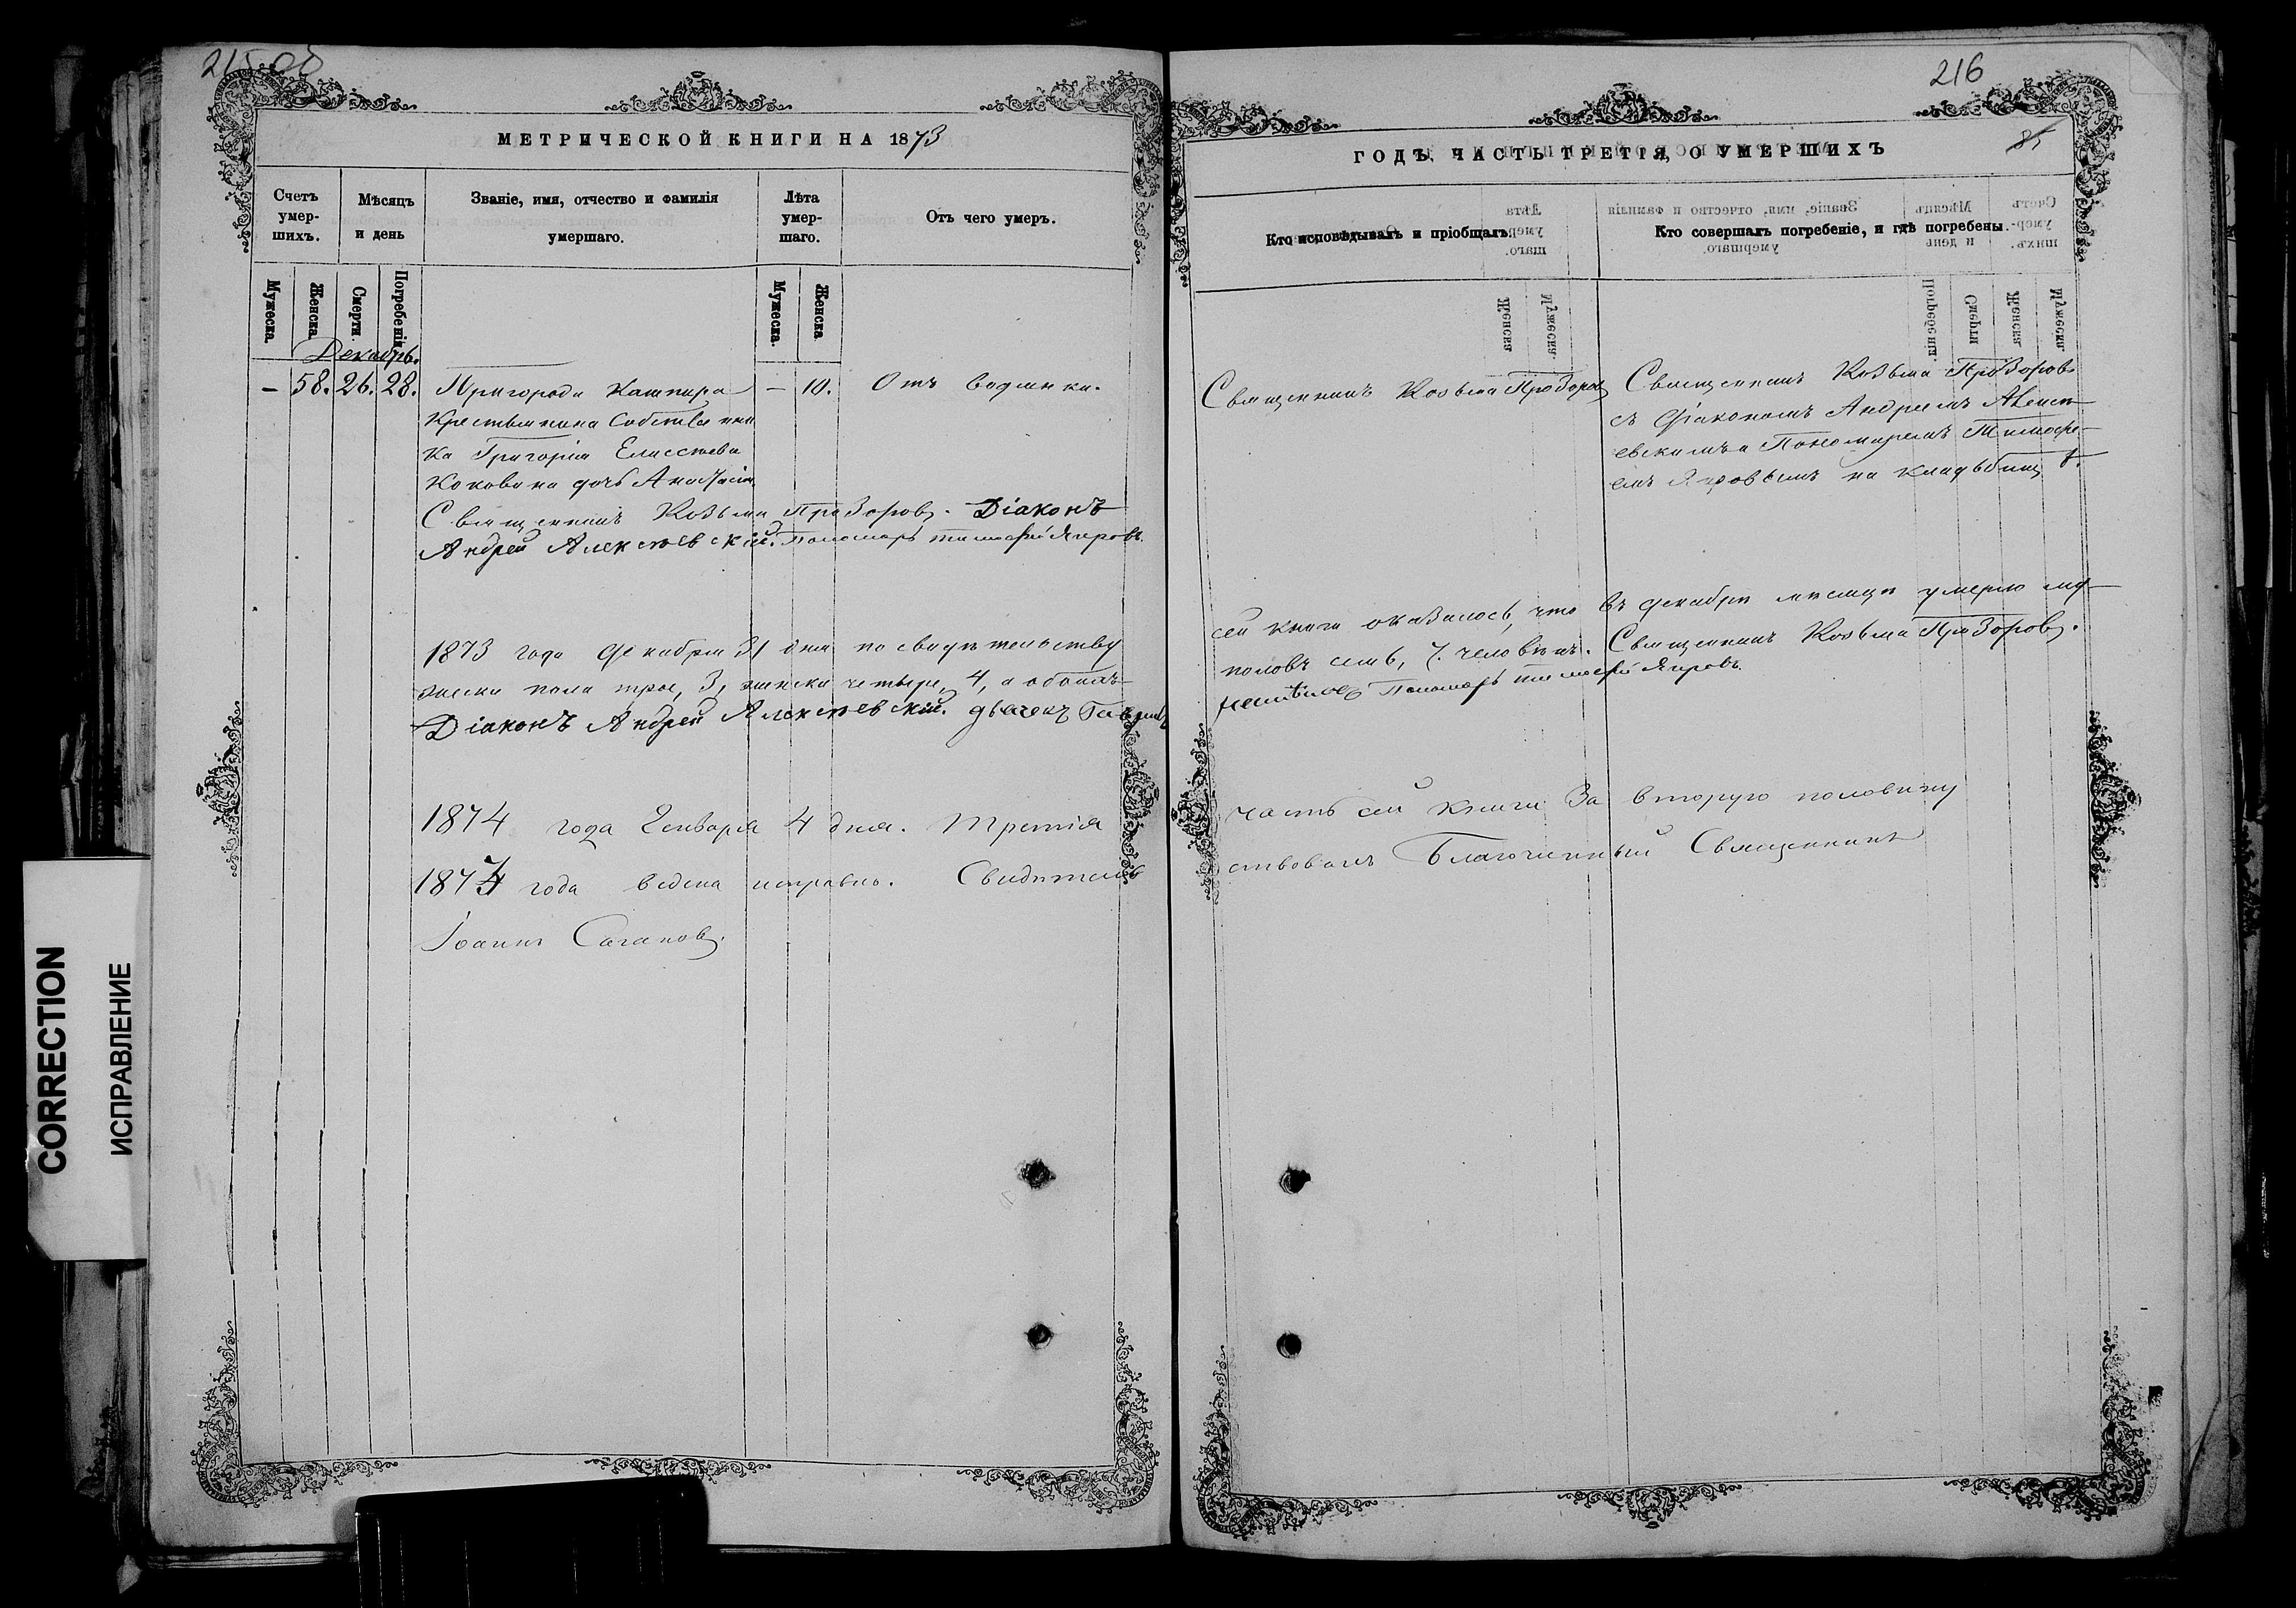 215 об
МЕТРИЧЕСКОЙ КНИГИ НА 1873
Счетъ умер-шихъ.
Мѣсяцъ и день
Званіе, имя, отчество и фамилія умершаго.
Лѣта умер-шаго.
Отъ чего умеръ.
Мужеска.
Женска
Смерти.
Погребенія
Мужеска.
Женска
Декабрь.
— 58. 26. 28. Пригорода Кашпира — 10. Отъ водянки.
Крестьянина Собственни
ка Григорія Елисеева
Коковина дочь Анастасія
Священникъ Козьма Прозоровъ. Діаконъ
Андрей Алексѣевскій. Пономарь Тимофей Яировъ.
1873 года Декабря 31 дня по свидѣтельству
жески пола трое, 3, женска четыре, 4, а обоихъ
Діаконъ Андрей Алексѣевскій. дьячекъ
1874 года Генваря 4 дня. Третія
1873 года ведена исправно. Свидѣтель
Іоаннъ Сагановъ.
216
85
ГОДЪ, ЧАСТЬ ТРЕТІЯ, О УМЕРШИХЪ
Кто исповѣдывалъ и пріобщалъ.
Кто совершалъ погребеніе, и гдѣ погребены.
Священникъ Козьма Прозоровъ
Священникъ Козьма Прозоровъ
съ Діакономъ Андреемъ Алексѣ
евскимъ и Пономаремъ Тимофе-
емъ Яировымъ на кладбищѣ.
сей книги оказалось, что въ Декабрѣ мѣсяцѣ умерло му
половъ семь, 7. человѣкъ. Священникъ Козьма Прозоровъ.
Пономарь Тимофей Яировъ
часть сей книги За вторую половину
ствовалъ Благочинный Священникъ
CORRECTION
ИСПРАВЛЕНИЕ